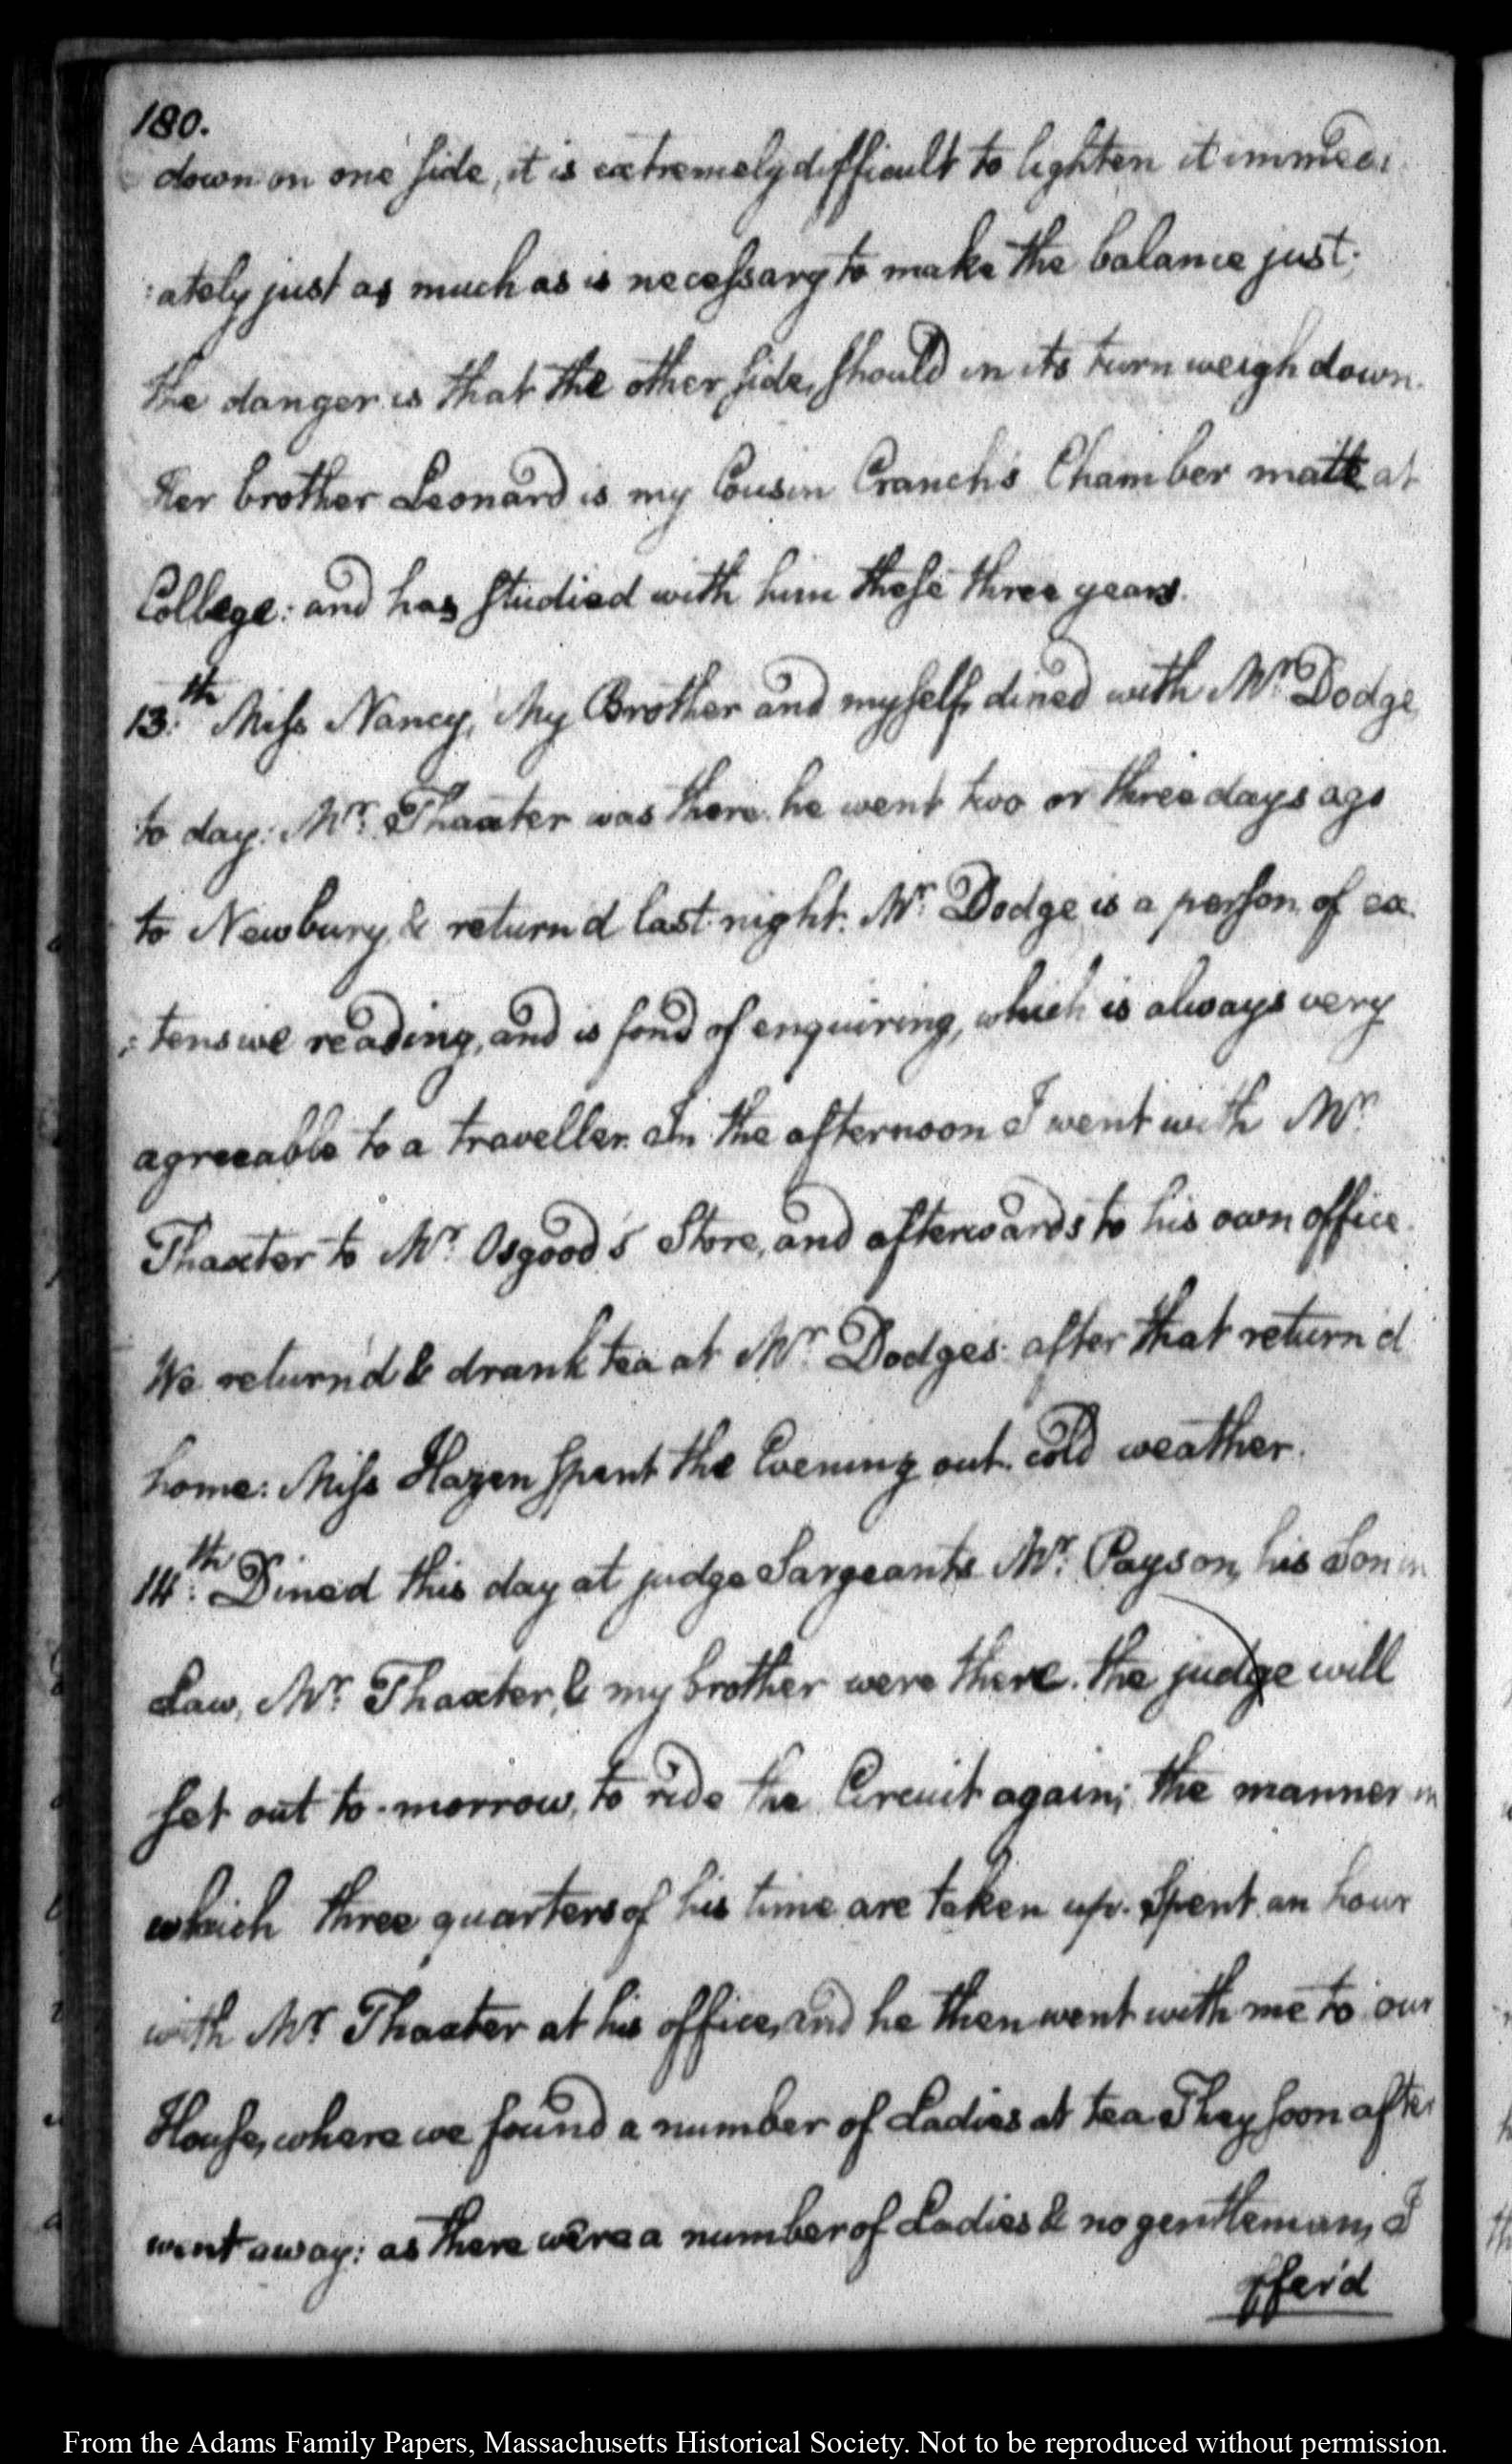 180.
down on one side, it is extremely difficult to lighten it immedi
:ately just as much as is necessary to make the balance just.
the danger is that the other side, should in its turn weigh down.
Her brother Leonard is my Cousin Cranch's Chamber mate at
College: and has studied with him these three years.
13.th Miss Nancy, My Brother and myself, dined with Mr. Dodge,
to day: Mr. Thaxter was there. he went two or three days ago
to Newbury, & return'd last night. Mr. Dodge is a person of ex
:tensive reading, and is fond of enquiring, which is always very
agreeable to a traveller. In the afternoon I went with Mr.
Thaxter to Mr. Osgood's Store, and afterwards to his own office.
We return'd & drank tea at Mr. Dodges: after that return'd
home: Miss Hazen spent the Evening out. cold weather.
14.th: Dined this day at judge Sargeants. Mr. Payson, his Son in
Law, Mr. Thaxter, & my brother were there. the judge will
set out to-morrow, to ride the Circuit again; the manner in
which three quarters of his time are taken up. Spent an hour
with Mr. Thaxter at his office, and he then went with me to our
House, where we found a number of Ladies at tea. They soon after
went away: as there were a number of Ladies & no gentleman, I
offer'd
From the Adams Family Papers, Massachusetts Historical Society. Not to be reproduced without permission.